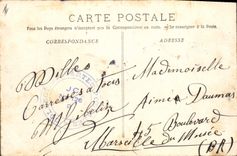 CARTE POSTALE
Tous les Pays étrangers n'acceptent pas la Correspondance au recto. — Se renseigner à la Poste.
CORRESPONDANCE
ADRESSE
Mille
Caresses à tous
Mademoiselle
Aimée Daumas
45 Boulevard
du Musée
Marseille
(BR)